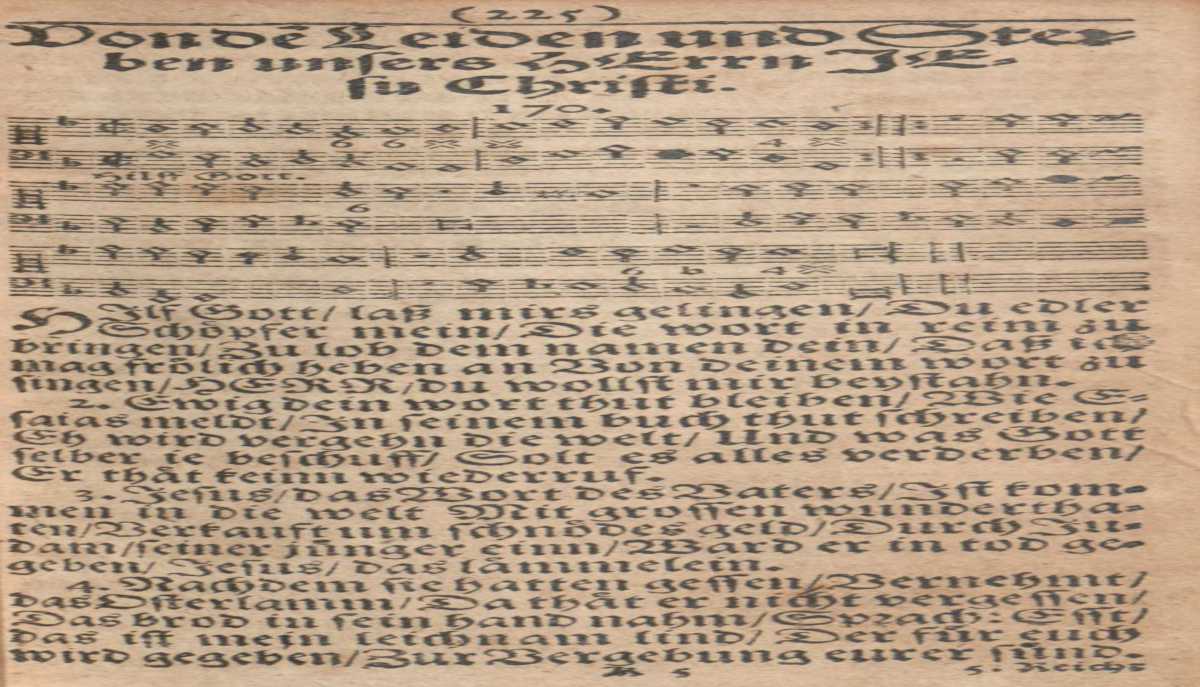 (225)
Von dē Leiden und Ster-
ben unsers HErrn JE-
su Christi.
170.
6 6
4
Hilff Gott.
6
6 b 4
HIlf Gott/ laß mirs gelingen/ Du edler
Schöpfer mein/ Die wort in reim zu
bringen/ Zu lob dem namen dein/ Daß ich
mag frölich heben an Von deinem wort zu
singen/ HERR/ du wollst mir beystahn.
2. Ewig dein wort thut bleiben/ Wie E-
saias meldt/ In seinem buch thut schreiben/
Eh wird vergehn die welt/ Und was Gott
selber ie beschuff/ Solt es alles verderben/
Er thät keinn wiederruf.
3. Jesus/ das Wort des Vaters/ Ist kom-
men in die welt Mit grossen wundertha-
ten/ Verkauft um schnödes geld/ Durch Ju-
dam/ seiner jünger einn/ Ward er in tod ge-
geben/ Jesus/ das lämmelein.
4. Nachdem sie hatten gessen/ Vernehmt/
das Osterlamm/ Da thät er nicht vergessen/
Das brod in sein hand nahm/ Sprach: Esst/
das ist mein leichnam lind/ Der für euch
wird gegeben/ Zur Vergebung eurer sünd.
K 5 5. Reichs